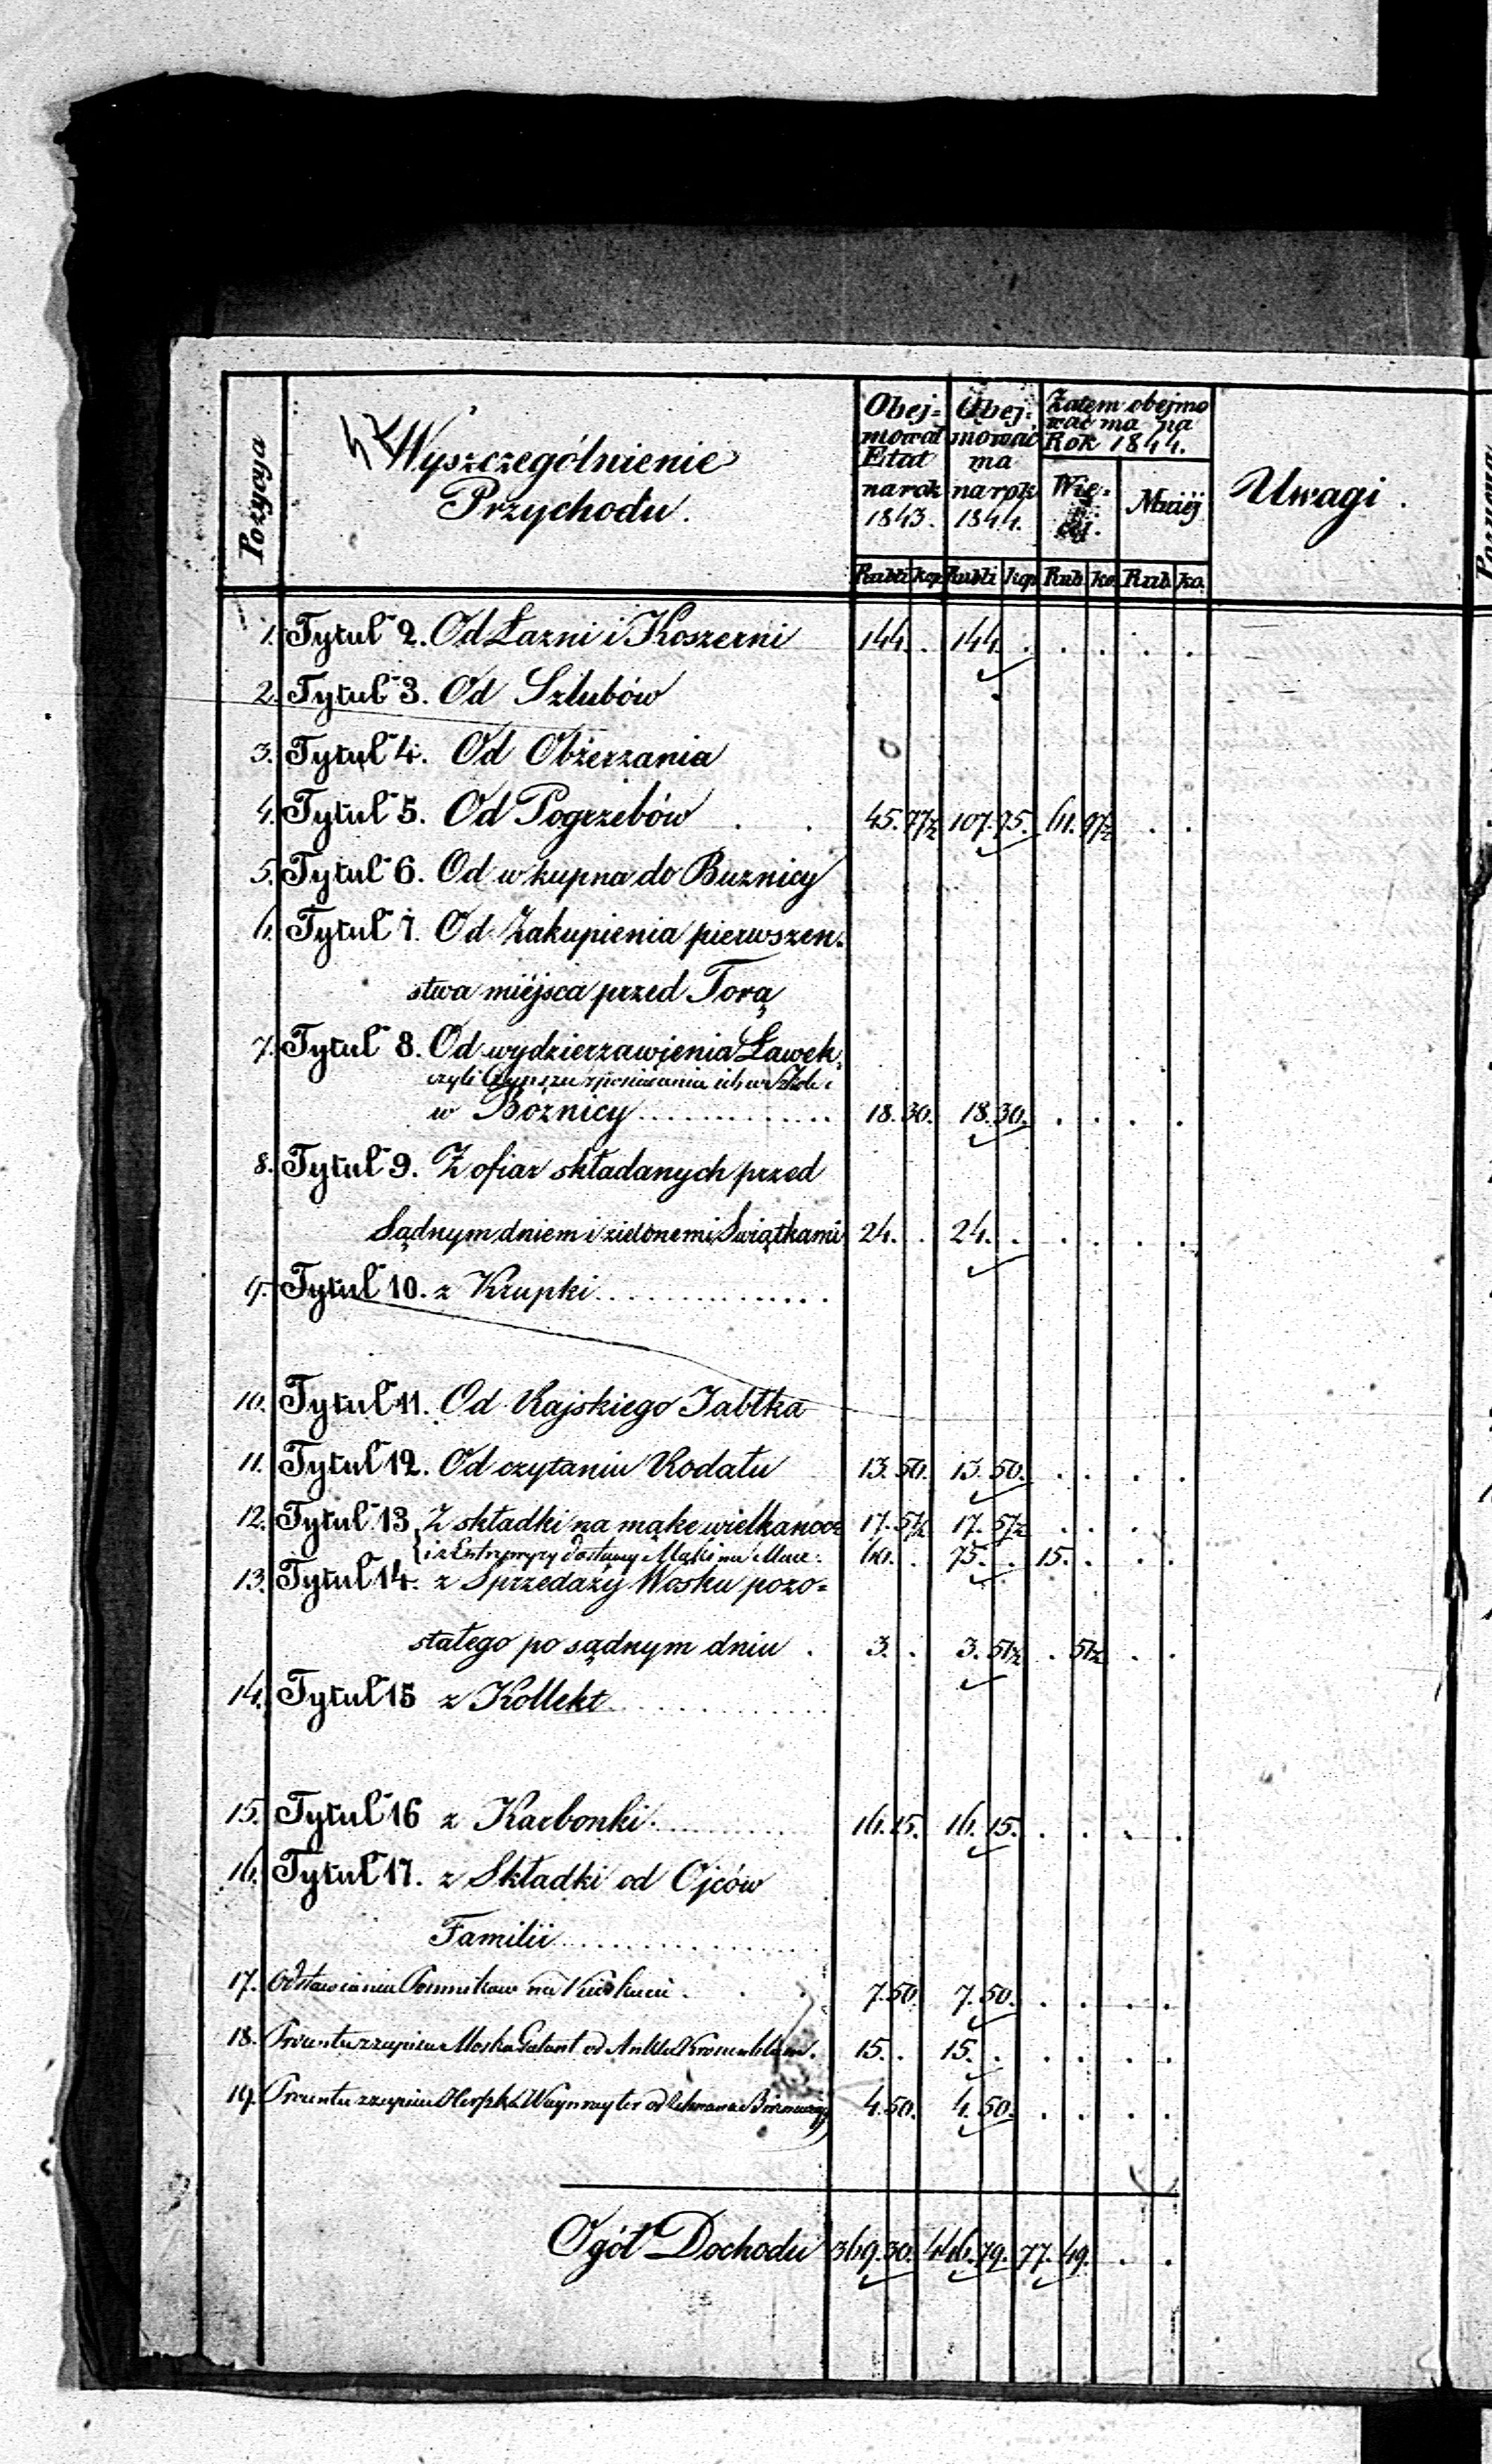 Pozycya
Wyszczególnienie
Przychodu.
Obej=
mował
Etat
na rok
1843.
Obej=
mować
ma
na rok
1844.
Zatem obejmo
wać ma na
Rok 1844.
Wię-
cej.
Mniéj
Uwagi.
Rubli kop Rubli kop Rub. ko. Rub. ko.
1. Tytuł 2. Od Łazni i Koszerni 144. . 144. . . . . .
2. Tytuł 3. Od Szlubów
3. Tytuł 4. Od Obżerzania
4. Tytuł 5. Od Pogrzebów . . 45. 77½ 107. 75. 61. 97½ . .
5. Tytuł 6. Od wkupna do Buznicy
6. Tytuł 7. Od Zakupienia pierwszen-
stwa miéjsca przed Torą
7. Tytuł 8. Od wydzierzawienia Ławek
czyli Czynszu z posiadania ich w Szkole
w Bożnicy 18. 30. 18. 30. . . . .
8. Tytuł 9. Z ofiar składanych przed
Sądnym dniem i zielonemi Swiątkami 24. . 24. . . . . .
9. Tytuł 10. z Krupki
10. Tytuł 11. Od Rajskiego Jabłka
11. Tytuł 12. Od czytania Rodału 13. 50. 13. 50. . . . .
12. Tytuł 13. Z składki na mąkę wielkanoc: 17. 57½ 17. 57½ . . .
i z Entrepryzy dostawy Mąki na Mace: 60. . 75. . 15. . . .
13. Tytuł 14. z Sprzedaży Wosku pozo=
stałego po sądnym dniu . 3. . 3. 51½ . 51½ . .
14. Tytuł 15 z Kollekt
15. Tytuł 16 z Karbonki 16. 15. 16. 15. . . . .
16. Tytuł 17. z Składki od Ojców
Familii
17. Od stawiania Pomników na Kirkucie 7. 50. 7. 50. . . . .
18. Procentu z zapisu Moska Galant od 15. . 15. . . . . .
19. Procentu z zapisu od 4. 50. 4. 50. . . . .
Ogół Dochodu 369. 30. 446. 79. 77. 49. . .